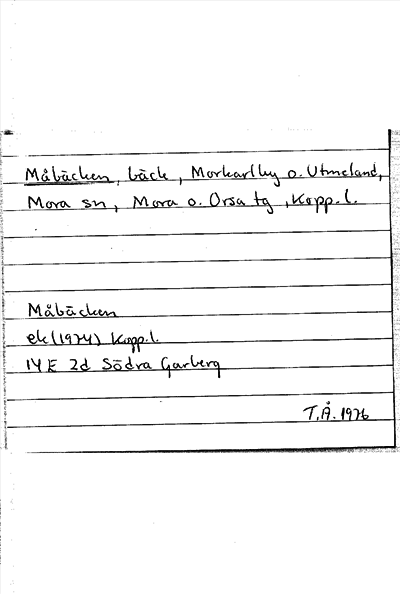 Måbäcken, bäck, Morkarlby o. Utmeland,
Mora sn, Mora o. Orsa tg, Kopp. l.
Måbäcken
ek (1974) Kopp. l.
14 E 2d Södra Garberg
T.Å. 1976